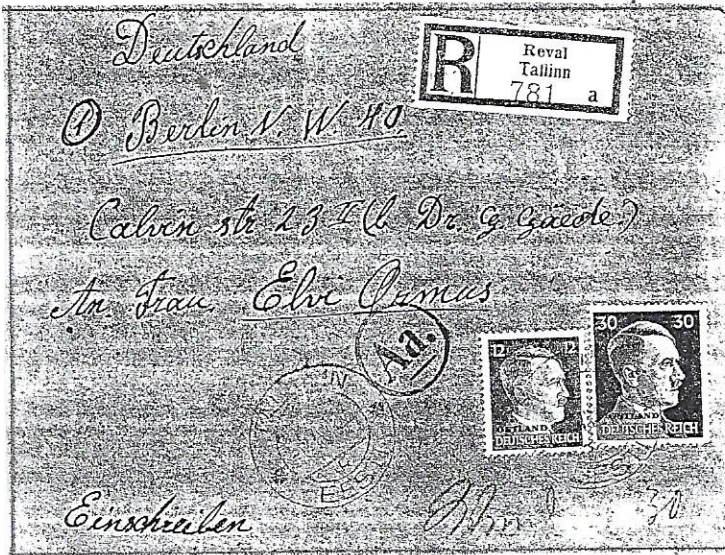 Deutschland
R
Reval
Tallinn
781 a
① Berlin N W. 40
Calvin str 23 II (b. Dr. G. Gaede.)
An Frau Elvi Ormus
Aa.
12 12
OSTLAND
DEUTSCHES REICH
30 30
OSTLAND
DEUTSCHES REICH
EESTI
Einschreiben
30